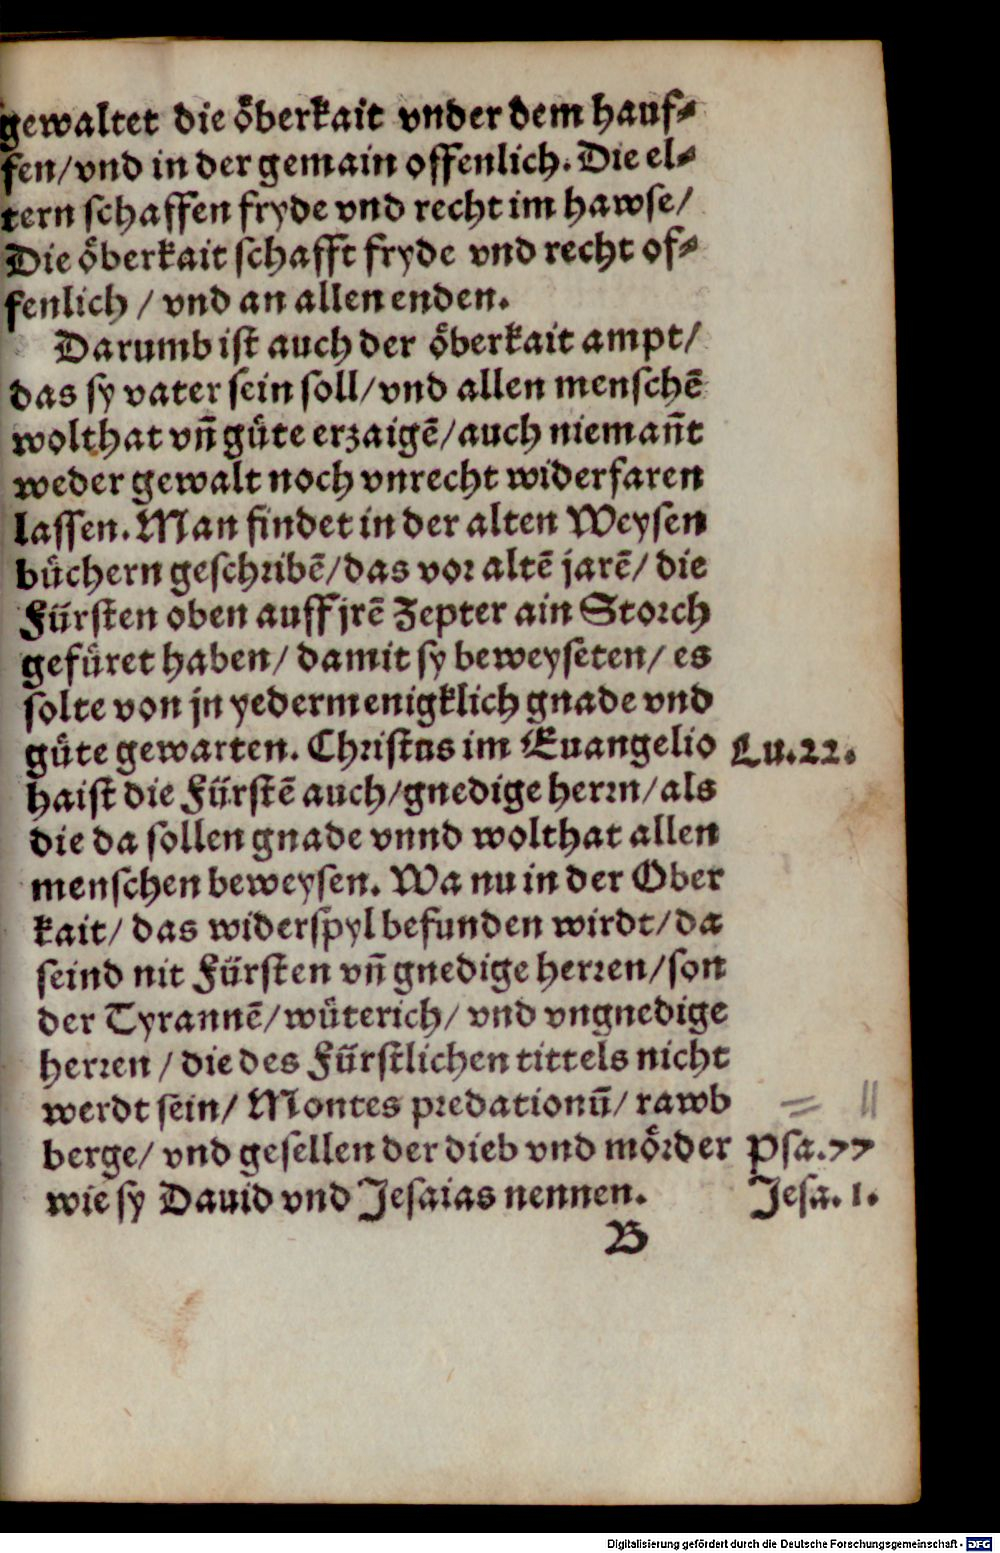 gewaltet die öberkait vnder dem hauf⸗
fen/vnd in der gemain offenlich. Die el⸗
tern schaffen fryde vnd recht im hawse/
Die öberkait schafft fryde vnd recht of⸗
fenlich / vnd an allen enden.
Darumb ist auch der öberkait ampt/
das sy vater sein soll/vnd allen menschē
wolthat vn̄ güte erzaigē/auch nieman̄t
weder gewalt noch vnrecht widerfaren
lassen. Man findet in der alten Weysen
büchern geschribē/das vor altē jarē/ die
Fürsten oben auff jrē Zepter ain Storch
gefüret haben/ damit sy beweyseten/ es
solte von jn yedermenigklich gnade vnd
güte gewarten. Christus im Euangelio Lu.22.
haist die Fürstē auch/gnedige herrn/als
die da sollen gnade vnnd wolthat allen
menschen beweysen. Wa nu in der Ober
kait/ das widerspyl befunden wirdt/da
seind nit Fürsten vn̄ gnedige herren/son
der Tyrannē/wüterich/ vnd vngnedige
herren / die des Fürstlichen tittels nicht
werdt sein/ Montes predationū/ rawb
berge/ vnd gesellen der dieb vnd mörder Psa.77
wie sy Dauid vnd Jesaias nennen. Jesa. 1.
B
Digitalisierung gefördert durch die Deutsche Forschungsgemeinschaft - DFG